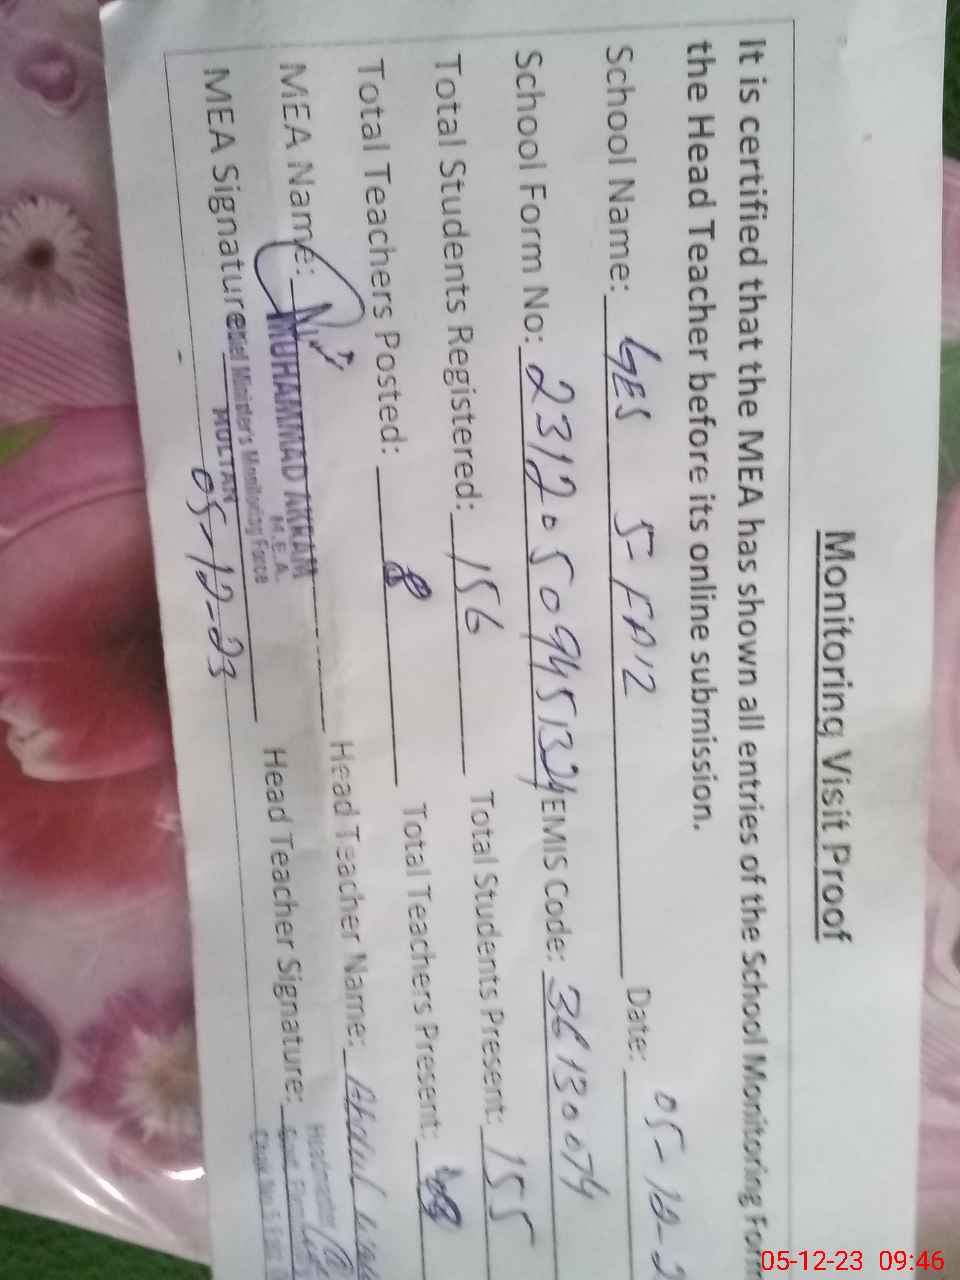 Monitoring Visit Proof
It is certified that the MEA has shown all entries of the School Monitoring Form
the Head Teacher before its online submission.
School Name: GES 5-FAIZ Date: 05-12-2
School Form No: 2312050945132 EMIS Code: 36130074
Total Students Registered: 156 Total Students Present: 155
Total Teachers Posted: 8 Total Teachers Present: 08
MEA Name: MUHAMMAD AKRAM Head Teacher Name: Abdul
M.E.A.
MEA Signature: Chief Minister's Monitoring Force Head Teacher Signature: Headmaster
MULTAN
05-12-23
05-12-23 09:46